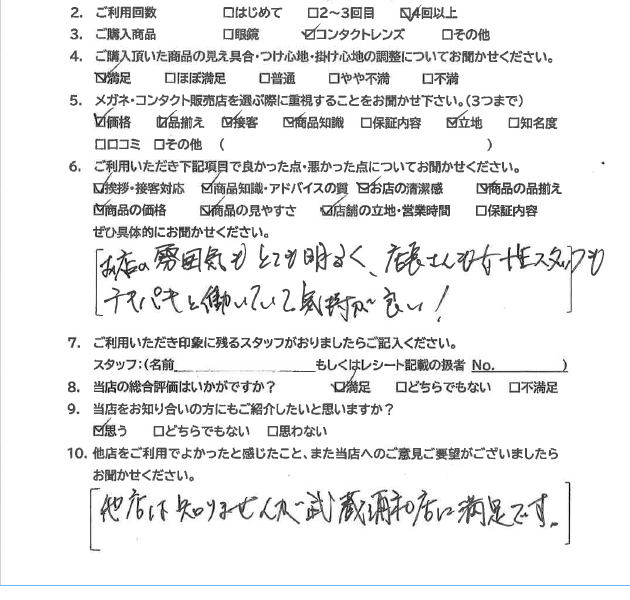 2. ご利用回数 □はじめて □2~3回目 ☑4回以上
3. ご購入商品 □眼鏡 ☑コンタクトレンズ □その他
4. ご購入頂いた商品の見え具合・つけ心地・掛け心地の調整についてお聞かせください。
☑満足 □ほぼ満足 □普通 □やや不満 □不満
5. メガネ・コンタクト販売店を選ぶ際に重視することをお聞かせ下さい。(3つまで)
☑価格 ☑品揃え ☑接客 ☑商品知識 □保証内容 ☑立地 □知名度
□口コミ □その他 ( )
6. ご利用いただき下記項目で良かった点・悪かった点についてお聞かせください。
☑挨拶・接客対応 ☑商品知識・アドバイスの質 ☑お店の清潔感 ☑商品の品揃え
☑商品の価格 ☑商品の見やすさ ☑店舗の立地・営業時間 □保証内容
ぜひ具体的にお聞かせください。
お店の雰囲気もとても明るく、店長さんも女性スタッフも
テキパキと働いていて気持が良い!
7. ご利用いただき印象に残るスタッフがおりましたらご記入ください。
スタッフ:(名前 もしくはレシート記載の扱者 No. )
8. 当店の総合評価はいかがですか? ☑満足 □どちらでもない □不満足
9. 当店をお知り合いの方にもご紹介したいと思いますか?
☑思う □どちらでもない □思わない
10. 他店をご利用でよかったと感じたこと、また当店へのご意見ご要望がございましたら
お聞かせください。
他店は知りませんが武蔵浦和店に満足です。